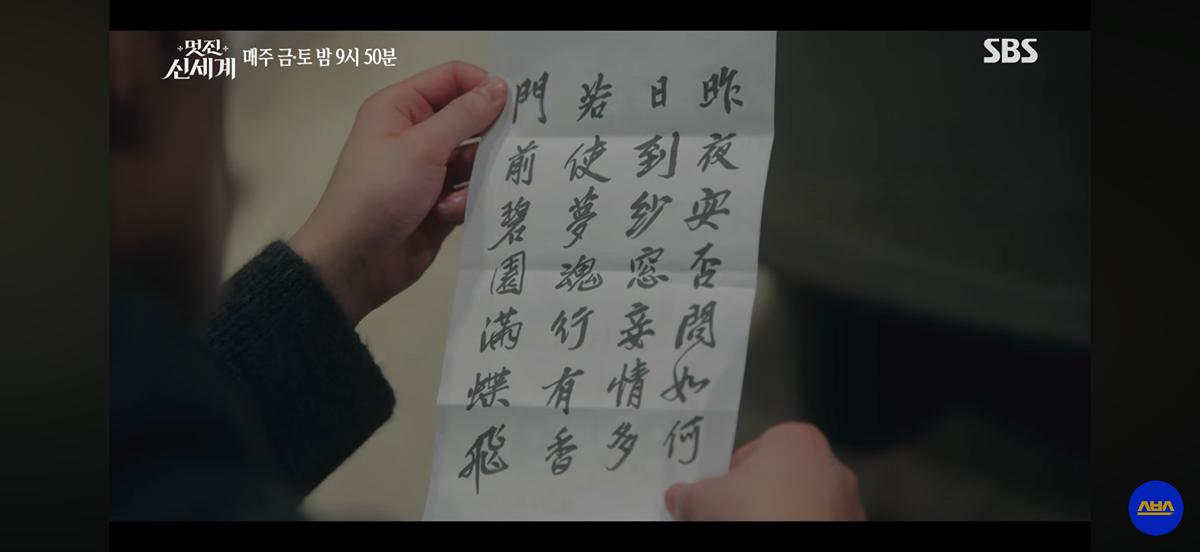 멋진
신세계
매주 금·토 밤 9시 50분
SBS
昨夜安否問如何
日到紗窓妾情多
若使夢魂行有香
門前碧園滿蝶飛